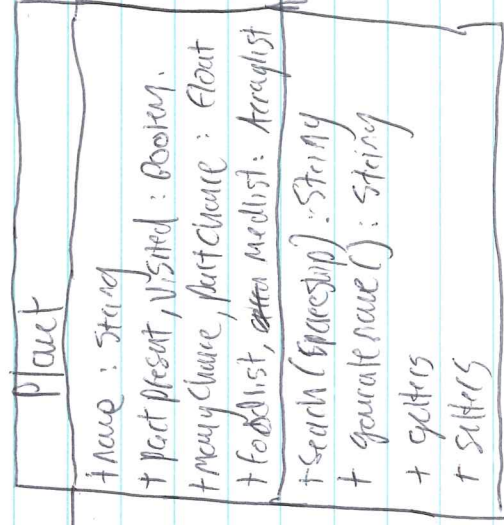 Planet
+ name : String
+ part present, visited : Boolean.
+ money chance, part chance : Float
+ foodlist, medlist : Arraylist
+ Search (Spaceship) : String
+ generatename() : String
+ getters
+ setters